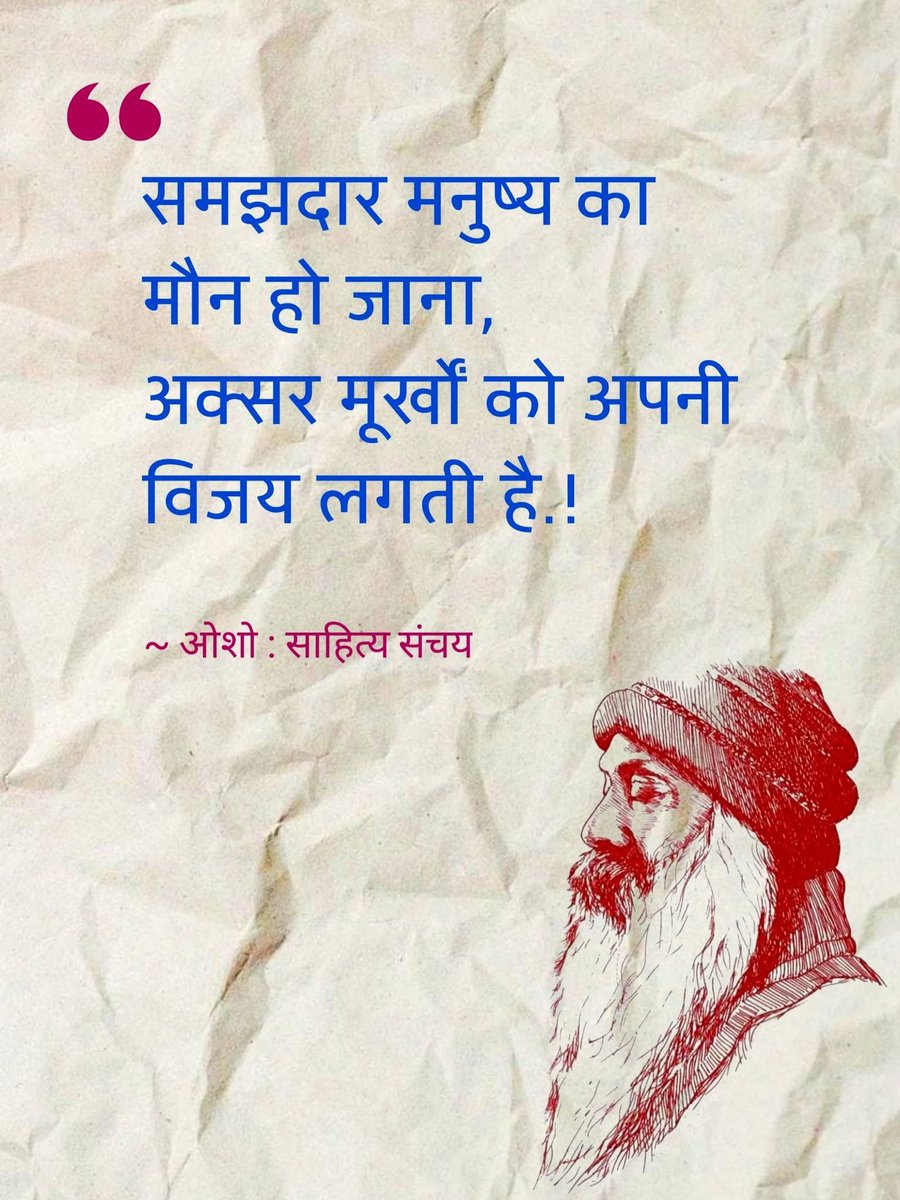 ❝
समझदार मनुष्य का
मौन हो जाना,
अक्सर मूर्खों को अपनी
विजय लगती है.!
~ ओशो : साहित्य संचय